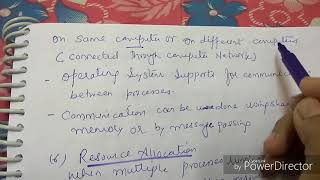 on same computer or on different computers
(connected through computer Network)
- Operating System Supports for communication
between processes.
- Communication can be done using shared
memory or by message passing
(6) Resource Allocation
when multiple processes
PowerDirector